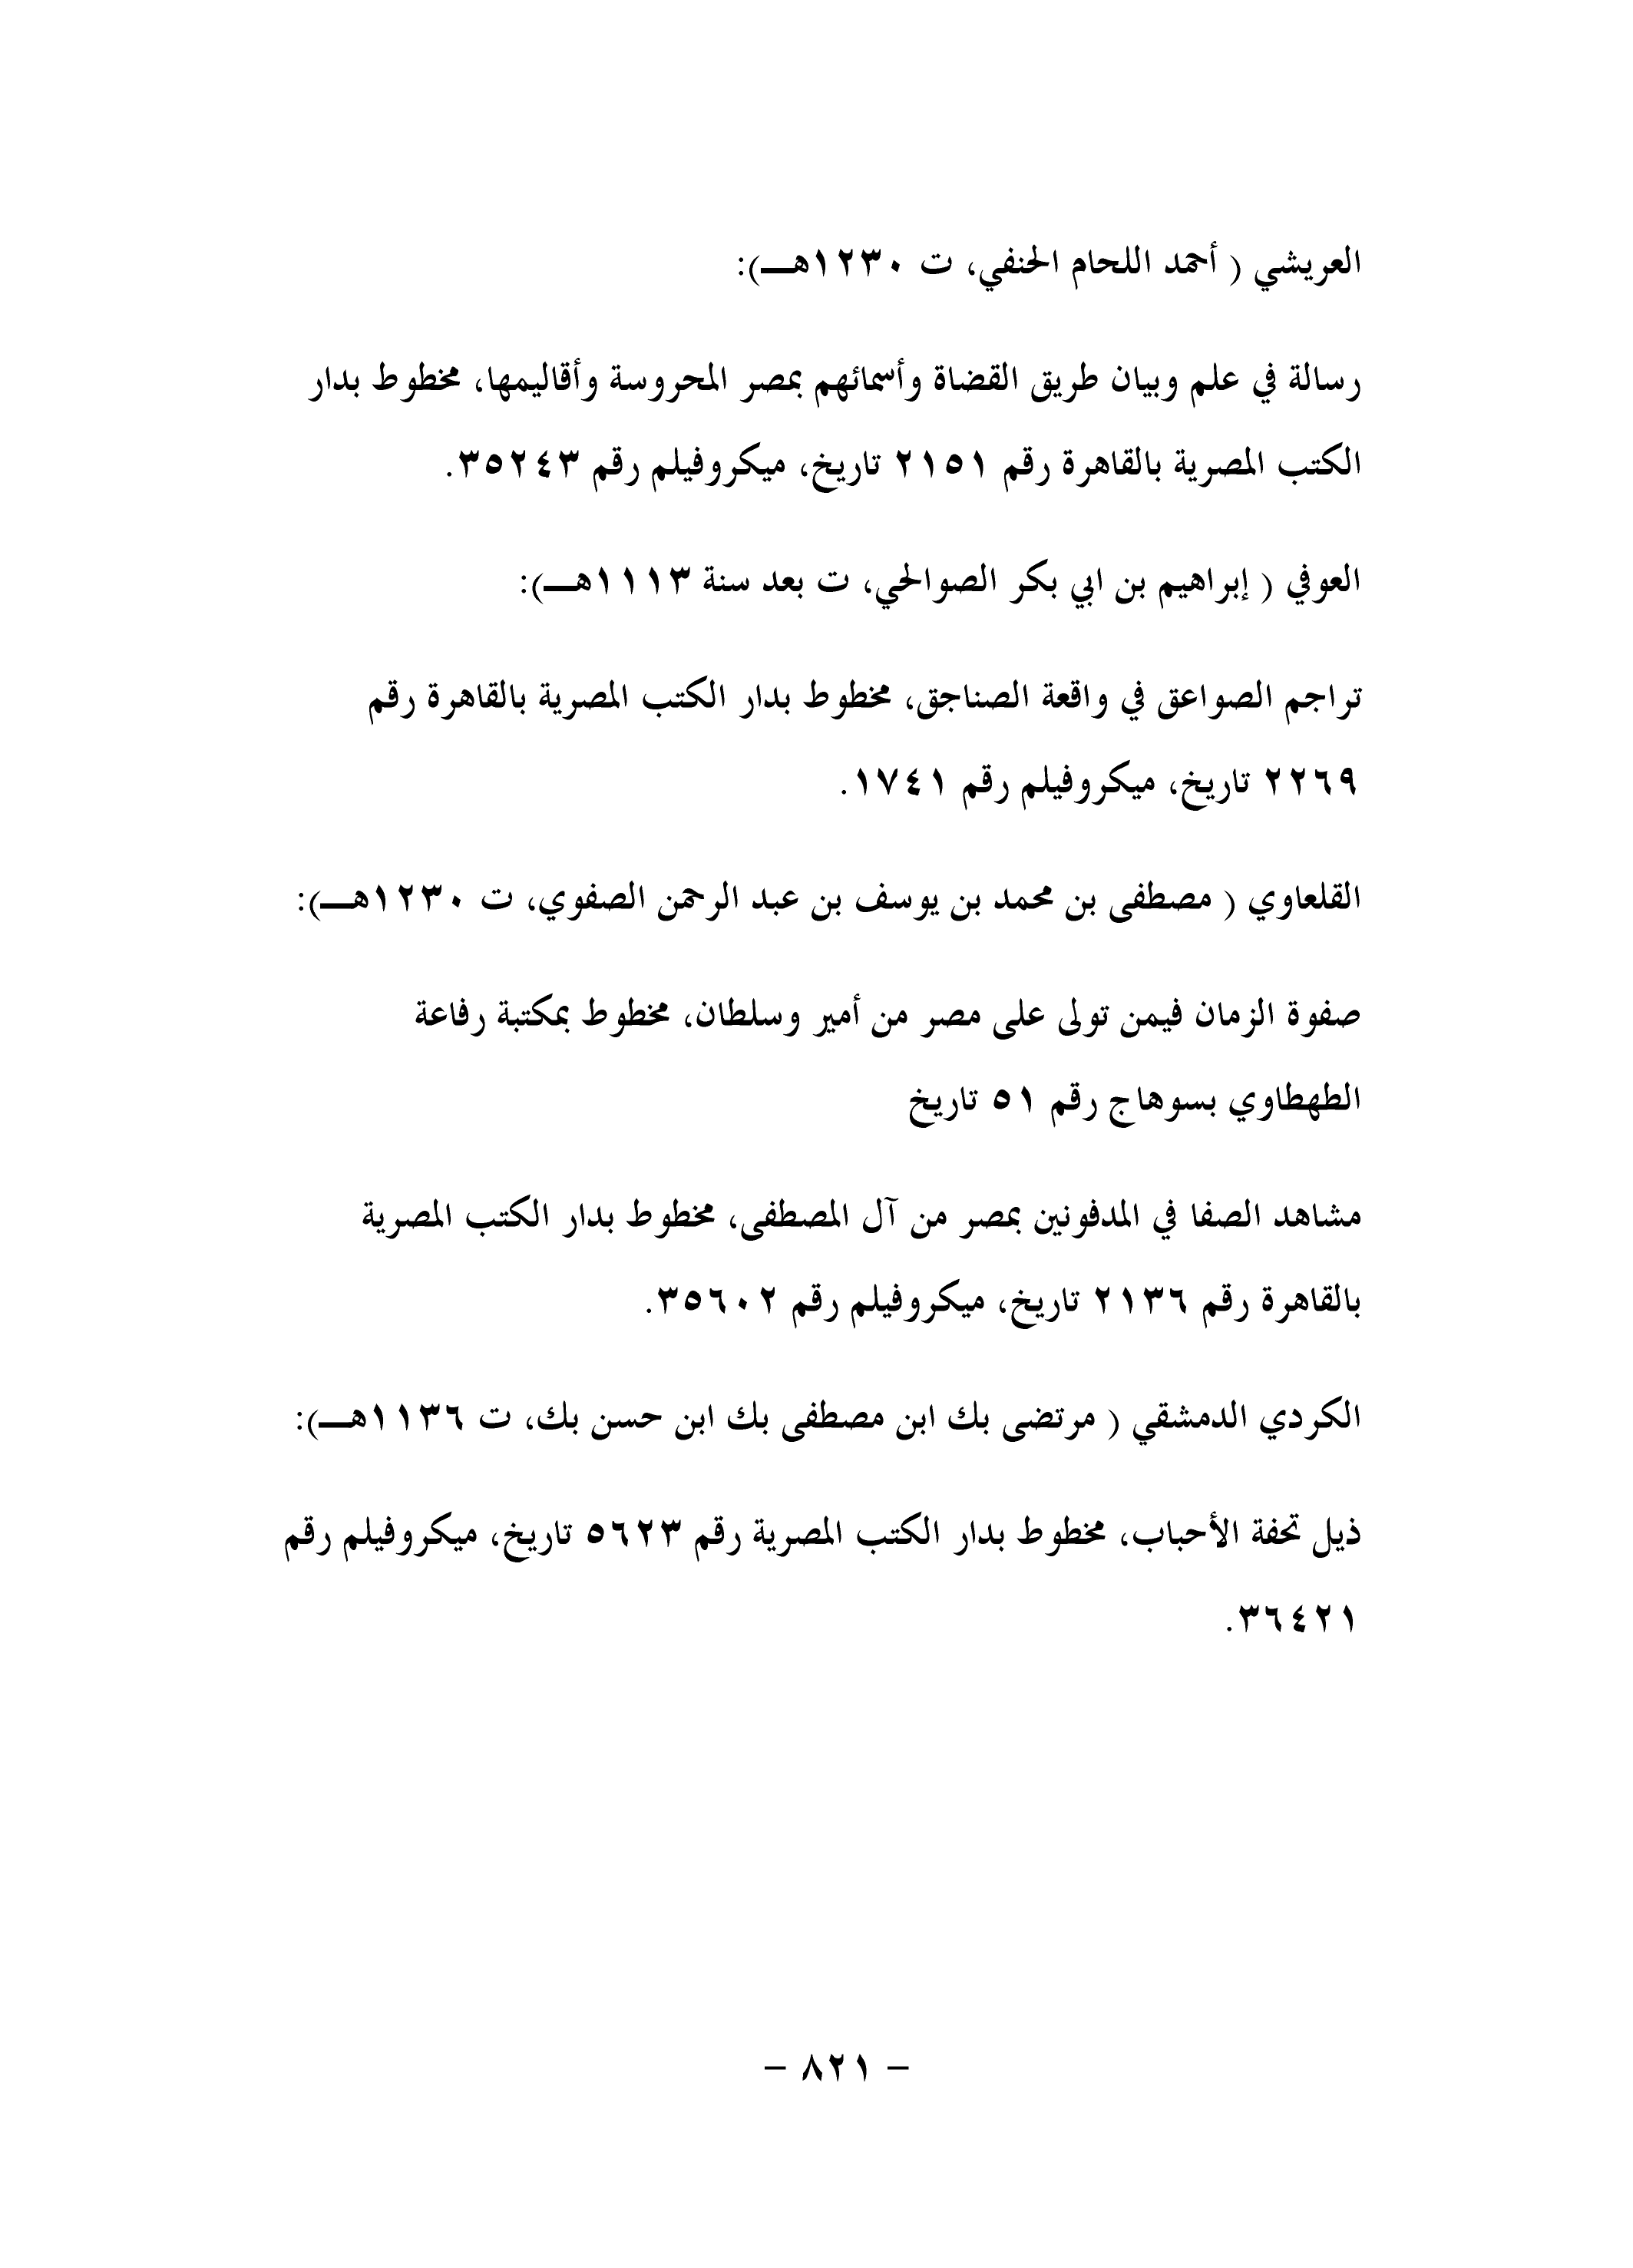 العريشي ( أحمد اللحام الحنفي، ت ١٢٣٠هــ):
رسالة في علم وبيان طريق القضاة وأسمائهم بمصر المحروسة وأقاليمها، مخطوط بدار
الكتب المصرية بالقاهرة رقم ٢١٥١ تاريخ، ميكروفيلم رقم ٣٥٢٤٣.
العوفي ( إبراهيم بن ابي بكر الصوالحي، ت بعد سنة ١١١٣هــ):
تراجم الصواعق في واقعة الصناجق، مخطوط بدار الكتب المصرية بالقاهرة رقم
٢٢٦٩ تاريخ، ميكروفيلم رقم ١٧٤١.
القلعاوي ( مصطفى بن محمد بن يوسف بن عبد الرحمن الصفوي، ت ١٢٣٠هــ):
صفوة الزمان فيمن تولى على مصر من أمير وسلطان، مخطوط بمكتبة رفاعة
الطهطاوي بسوهاج رقم ٥١ تاريخ
مشاهد الصفا في المدفونين بمصر من آل المصطفى، مخطوط بدار الكتب المصرية
بالقاهرة رقم ٢١٣٦ تاريخ، ميكروفيلم رقم ٣٥٦٠٢.
الكردي الدمشقي ( مرتضى بك ابن مصطفى بك ابن حسن بك، ت ١١٣٦هــ):
ذيل تحفة الأحباب، مخطوط بدار الكتب المصرية رقم ٥٦٢٣ تاريخ، ميكروفيلم رقم
٣٦٤٢١.
- ٨٢١ -